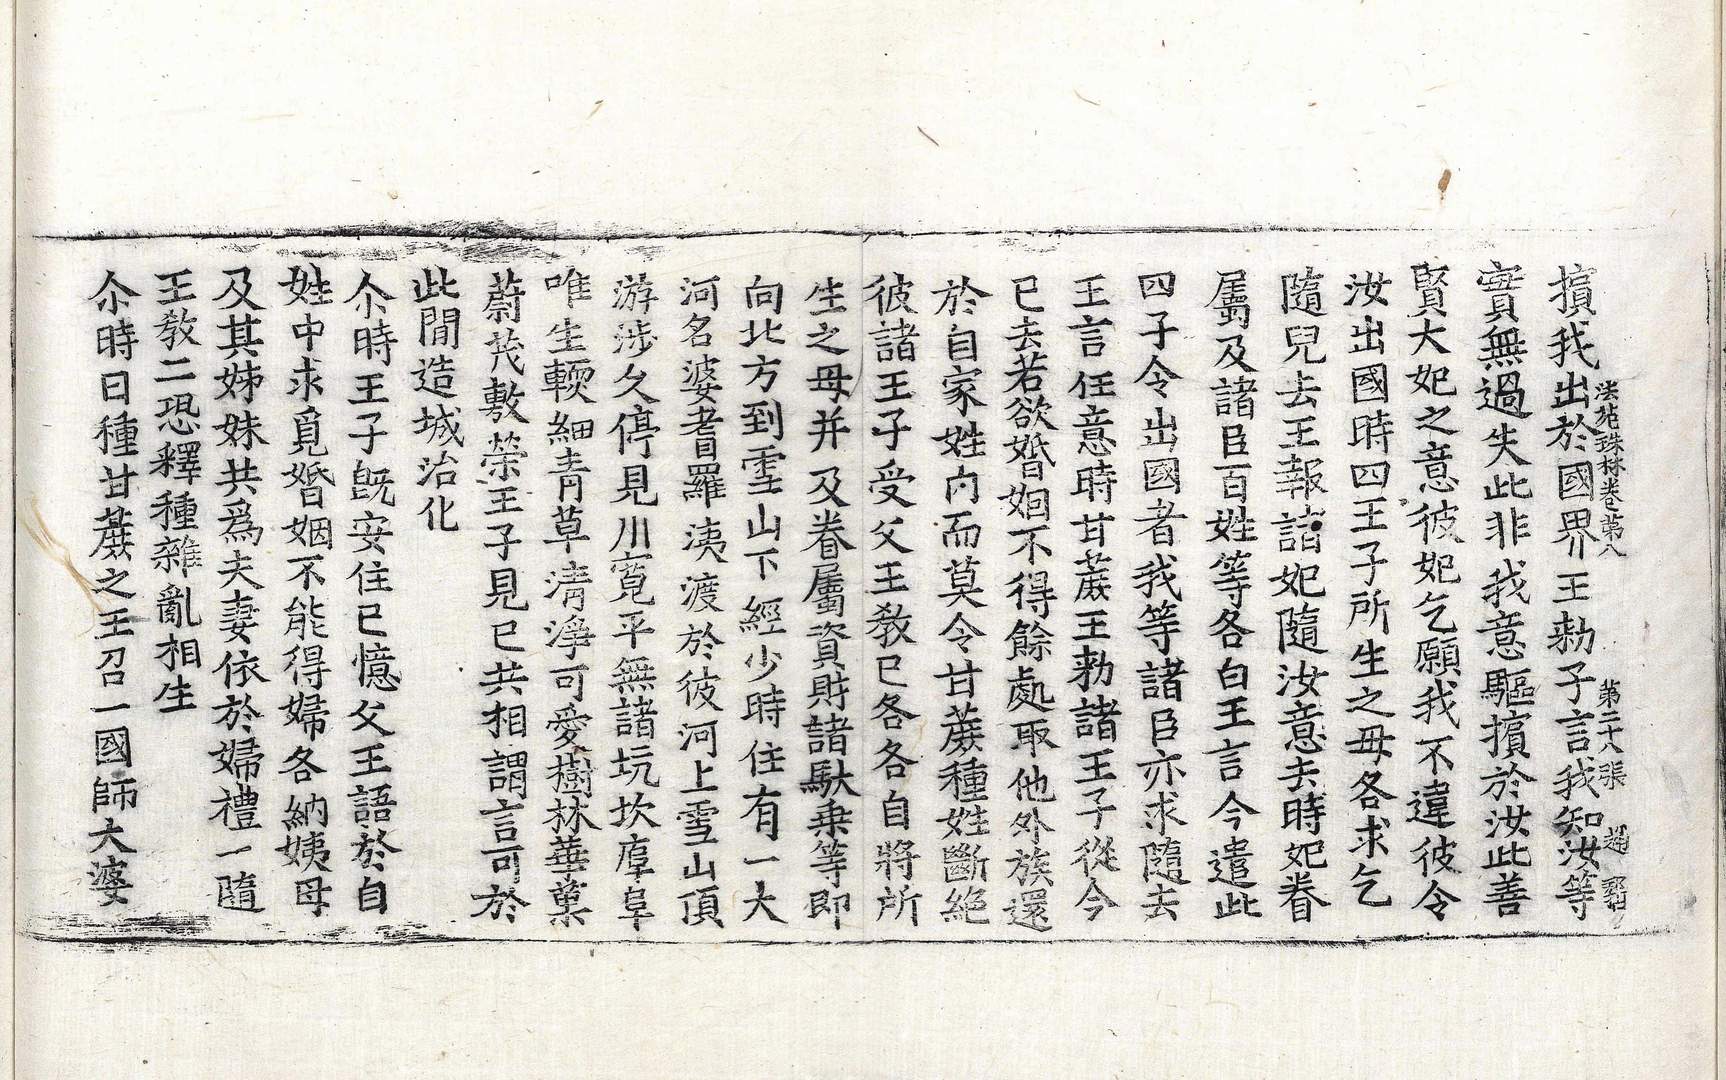 法苑珠林卷第八 第二十八張 趙
擯我出於國界王勑子言我知汝等
實無過失此非我意驅擯於汝此善
賢大妃之意彼妃乞願我不違彼令
汝出國時四王子所生之母各求乞
隨兒去王報諸妃隨汝意去時妃眷
屬及諸臣百姓等各白王言今遣此
四子令出國者我等諸臣亦求隨去
王言任意時甘蔗王勑諸王子從今
已去若欲婚姻不得餘處取他外族還
於自家姓內而莫令甘蔗種姓斷絕
彼諸王子受父王教已各各自將所
生之母并及眷屬資財諸馱乗等即
向北方到雪山下經少時住有一大
河名婆耆羅洟渡於彼河上雪山頂
游涉久停見川寬平無諸坑坎塠阜
唯生輭細青草清淨可愛樹林華菓
蔚茂敷榮王子見已共相謂言可於
此間造城治化
尒時王子旣安住已憶父王語於自
姓中求覓婚姻不能得婦各納姨母
及其姊妹共爲夫妻依於婦禮一隨
王教二恐釋種雜亂相生
尒時日種甘蔗之王召一國師大婆